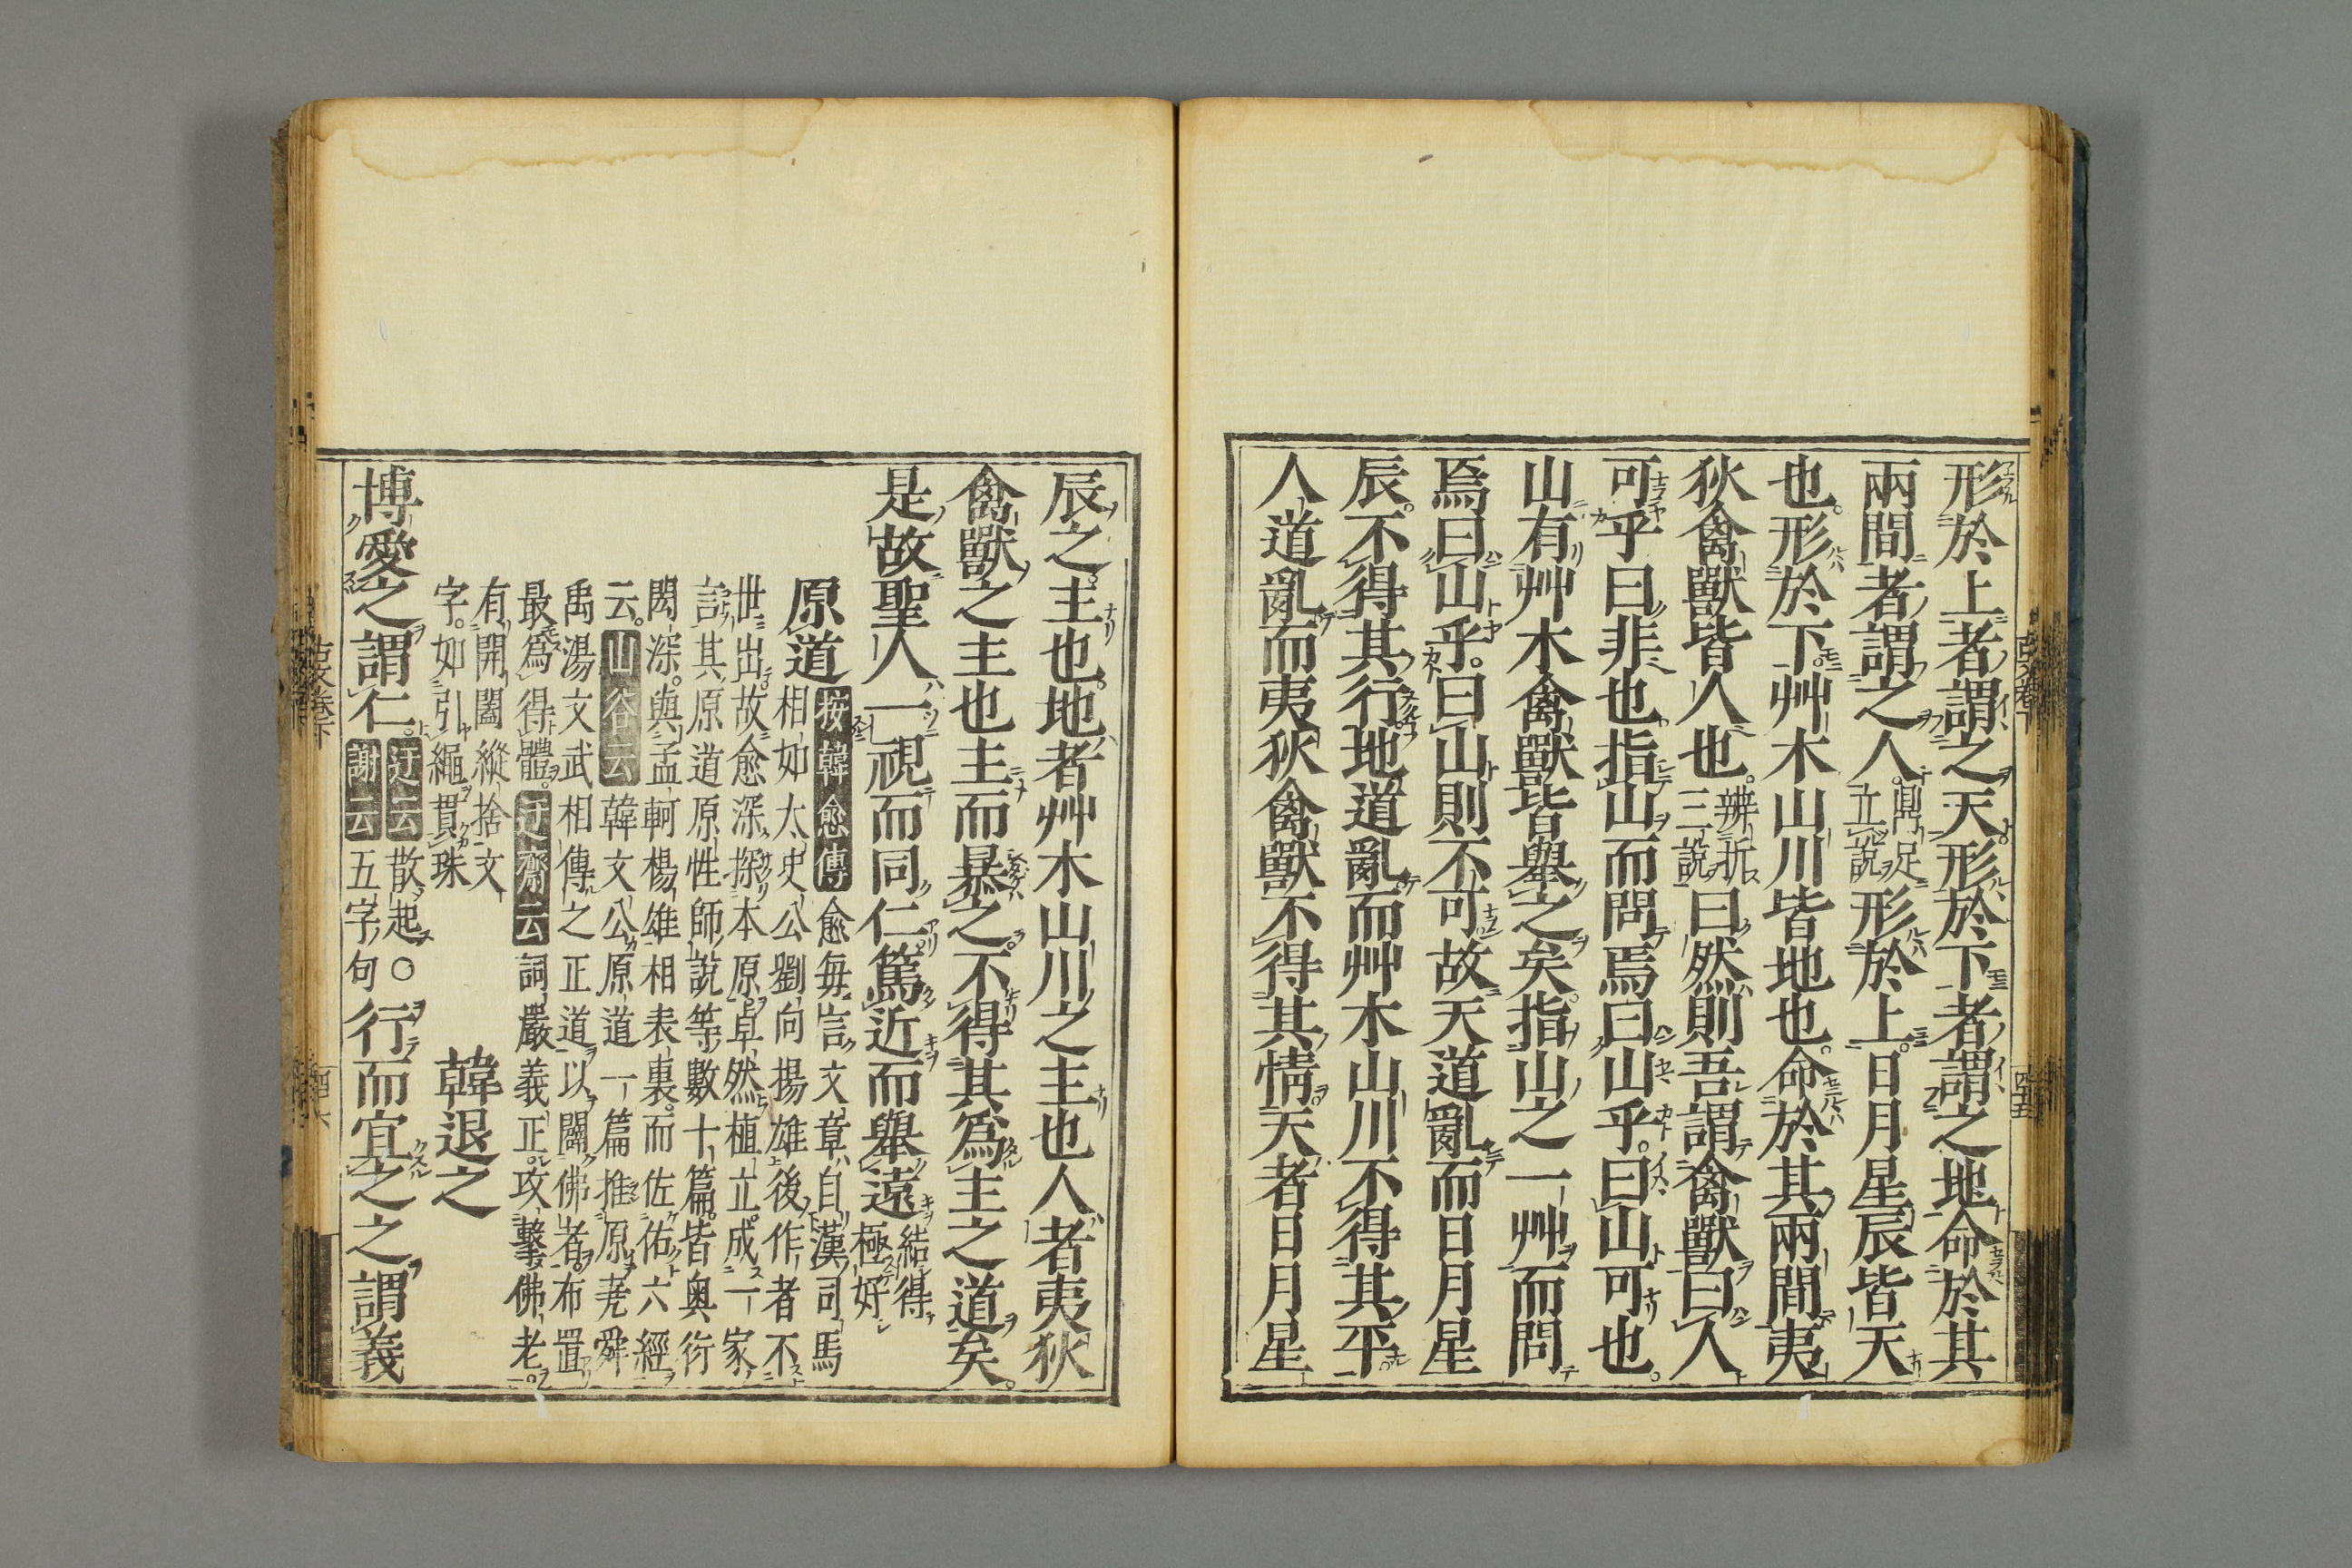 形於上者謂之天形於下者謂之地命於其
兩間者謂之人鼎足立說形於上日月星辰皆天
也形於下艸木山川皆地也命於其兩間夷
狄禽獸皆人也辨折三說曰然則吾謂禽獸曰人
可乎曰非也指山而問焉曰山乎曰山可也
山有艸木禽獸皆舉之矣指山之一艸而問
焉曰山乎曰山則不可故天道亂而日月星
辰不得其行地道亂而艸木山川不得其平
人道亂而夷狄禽獸不得其情天者日月星
辰之主也地者艸木山川之主也人者夷狄
禽獸之主也主而暴之不得其為主之道矣
是故聖人一視而同仁篤近而舉遠結得極好
原道按韓愈傳愈每言文章自漢司馬
相如太史公劉向揚雄後作者不
世出故愈深探本原卓然植立成一家
言其原道原性師說等數十篇皆奧衍
閎深與孟軻楊雄相表裏而佐佑六經
云山谷云韓文公原道一篇推原堯舜
禹湯文武相傳之正道以闢佛者布置
最為得體迂齋云詞嚴義正攻擊佛老
有開闔縱捨文
字如引繩貫珠
韓退之
博愛之謂仁迂云散起〇謝云五字句行而宜之之謂義